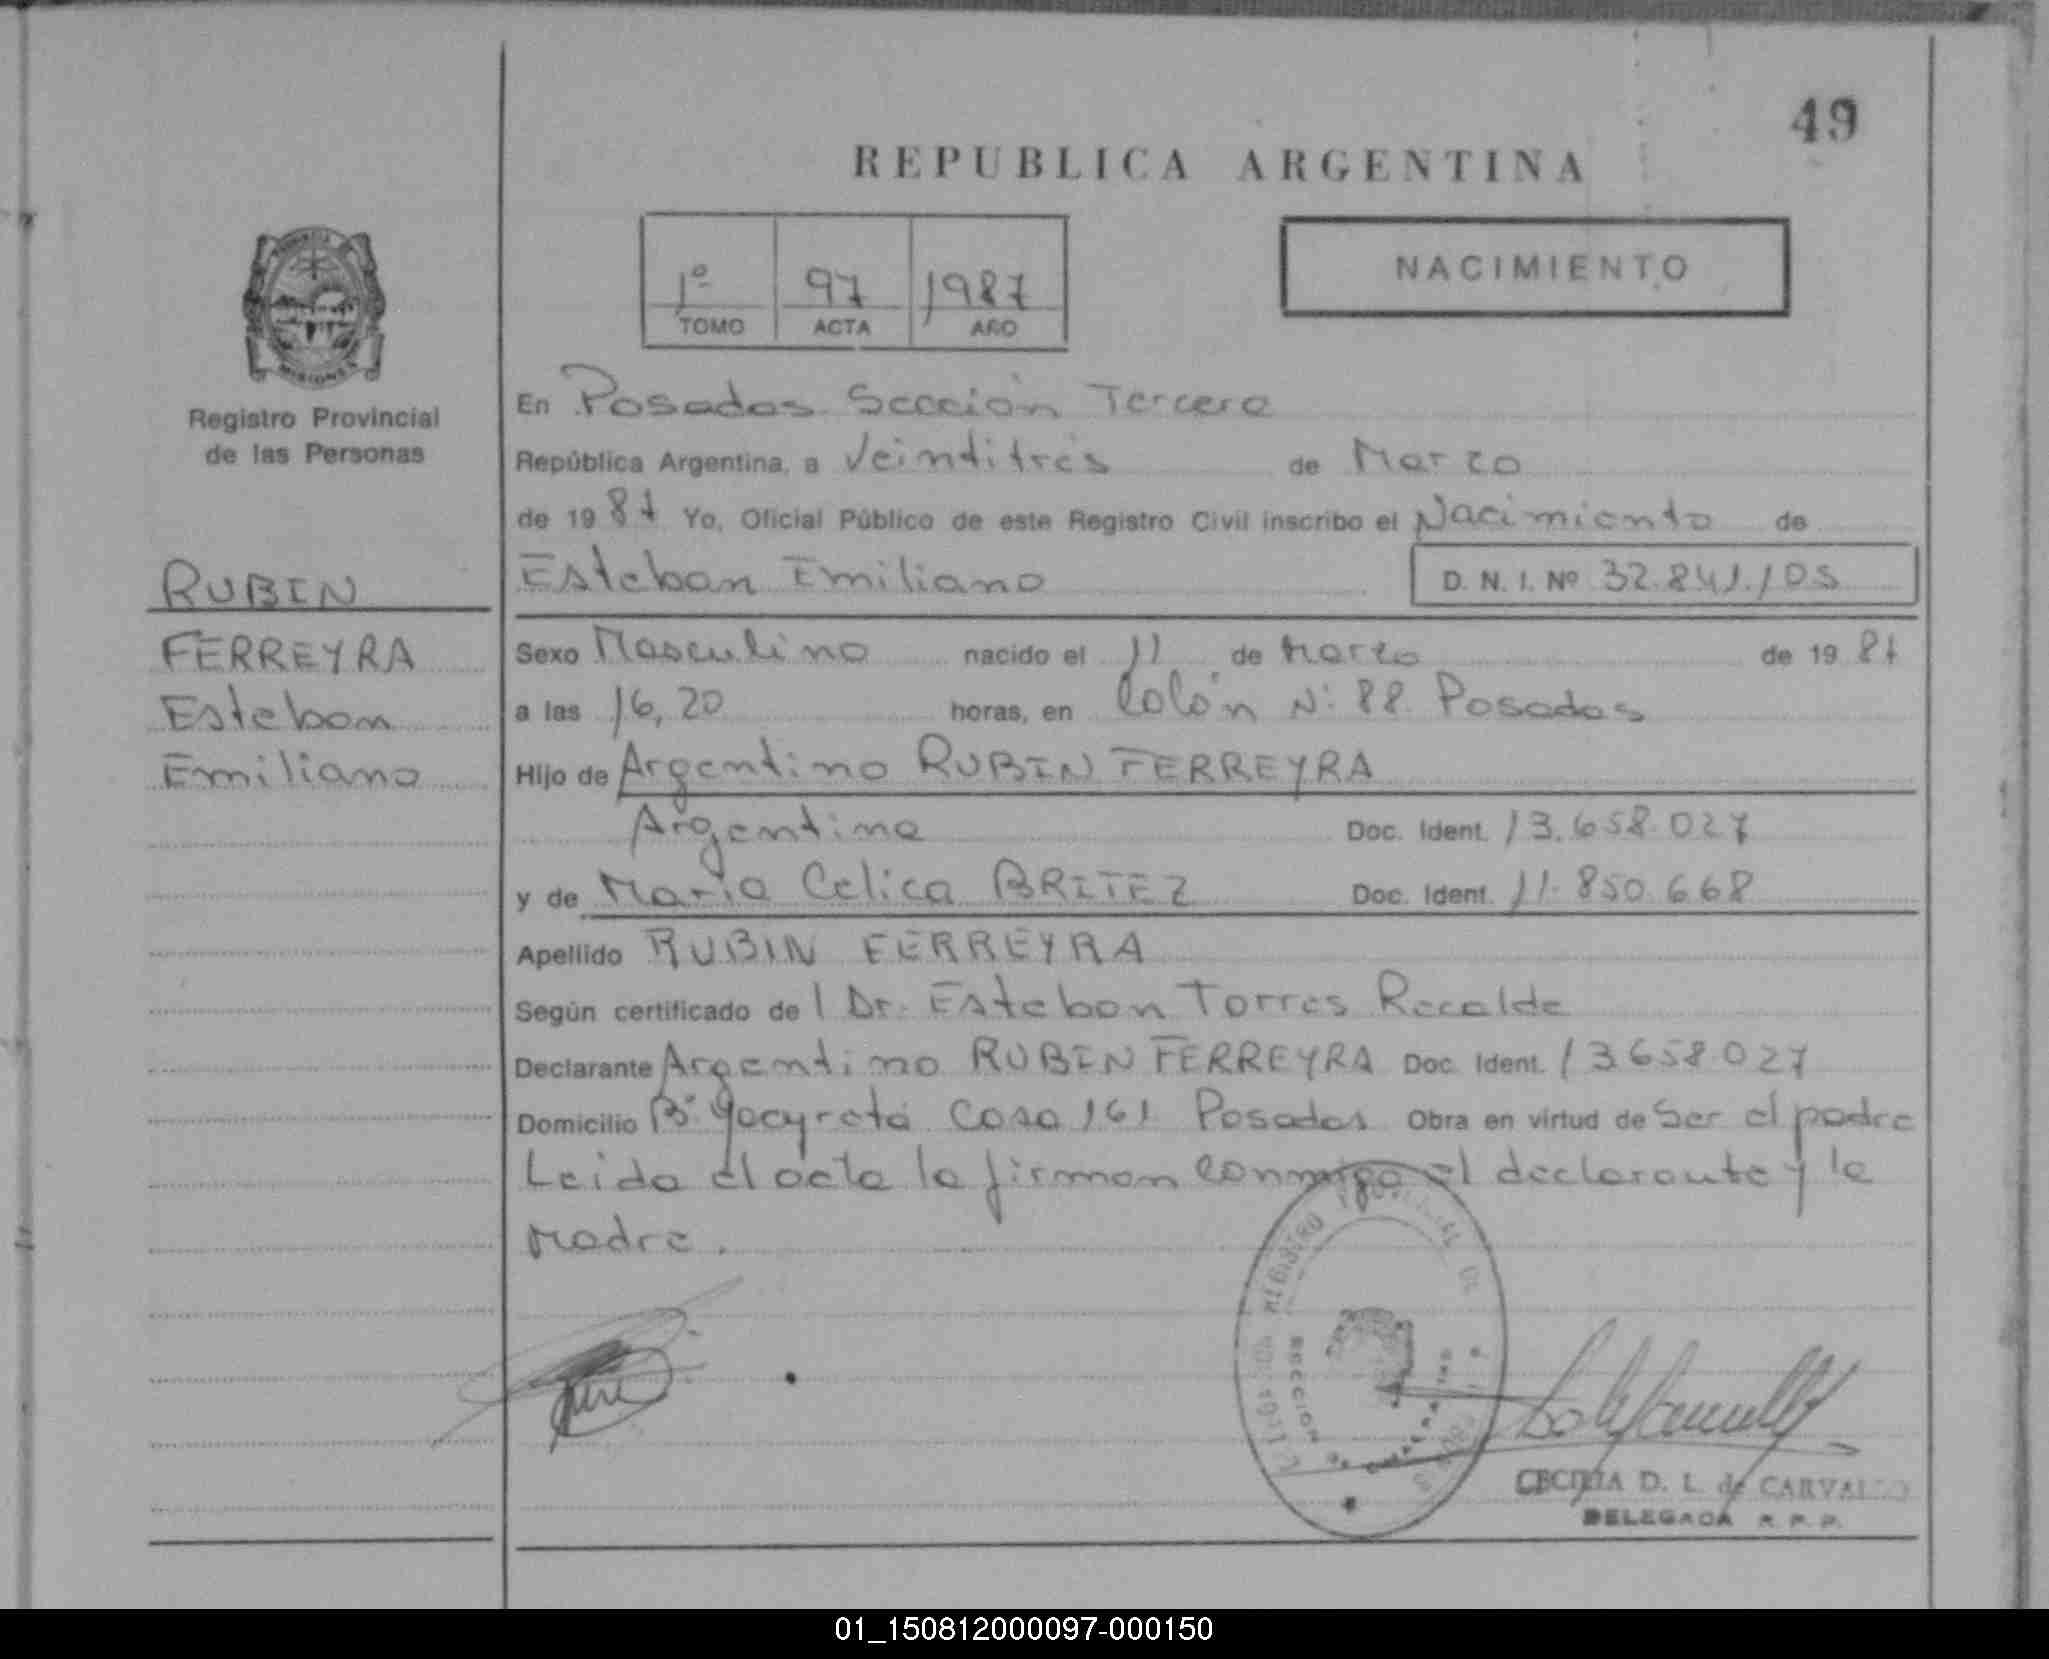 49
REPUBLICA ARGENTINA
NACIMIENTO
1º 97 1987
TOMO ACTA AÑO
MISIONES
Registro Provincial
de las Personas
RUBIN
FERREYRA
Esteban
Emiliano
En Posadas Sección Tercera
República Argentina, a Veintitrés de Marzo
de 1987 Yo, Oficial Público de este Registro Civil inscribo el Nacimiento de
Esteban Emiliano D. N. I. Nº 32.841.105
Sexo Masculino nacido el 11 de Marzo de 1987
a las 16,20 horas, en Colón Nº 88 Posadas
Hijo de Argentino RUBIN FERREYRA
Argentina Doc. Ident. 13.658.027
y de María Celica BRITEZ Doc. Ident. 11.850.668
Apellido RUBIN FERREYRA
Según certificado del Dr. Esteban Torres Recalde
Declarante Argentino RUBIN FERREYRA Doc. Ident. 13658027
Domicilio Bº Yacyretá Casa 161 Posadas Obra en virtud de Ser el padre
Leida el acta la firman conmigo el declarante y la
Madre.
CECILIA D. L. de CARVALLO
DELEGADA R. P. P.
01_150812000097-000150